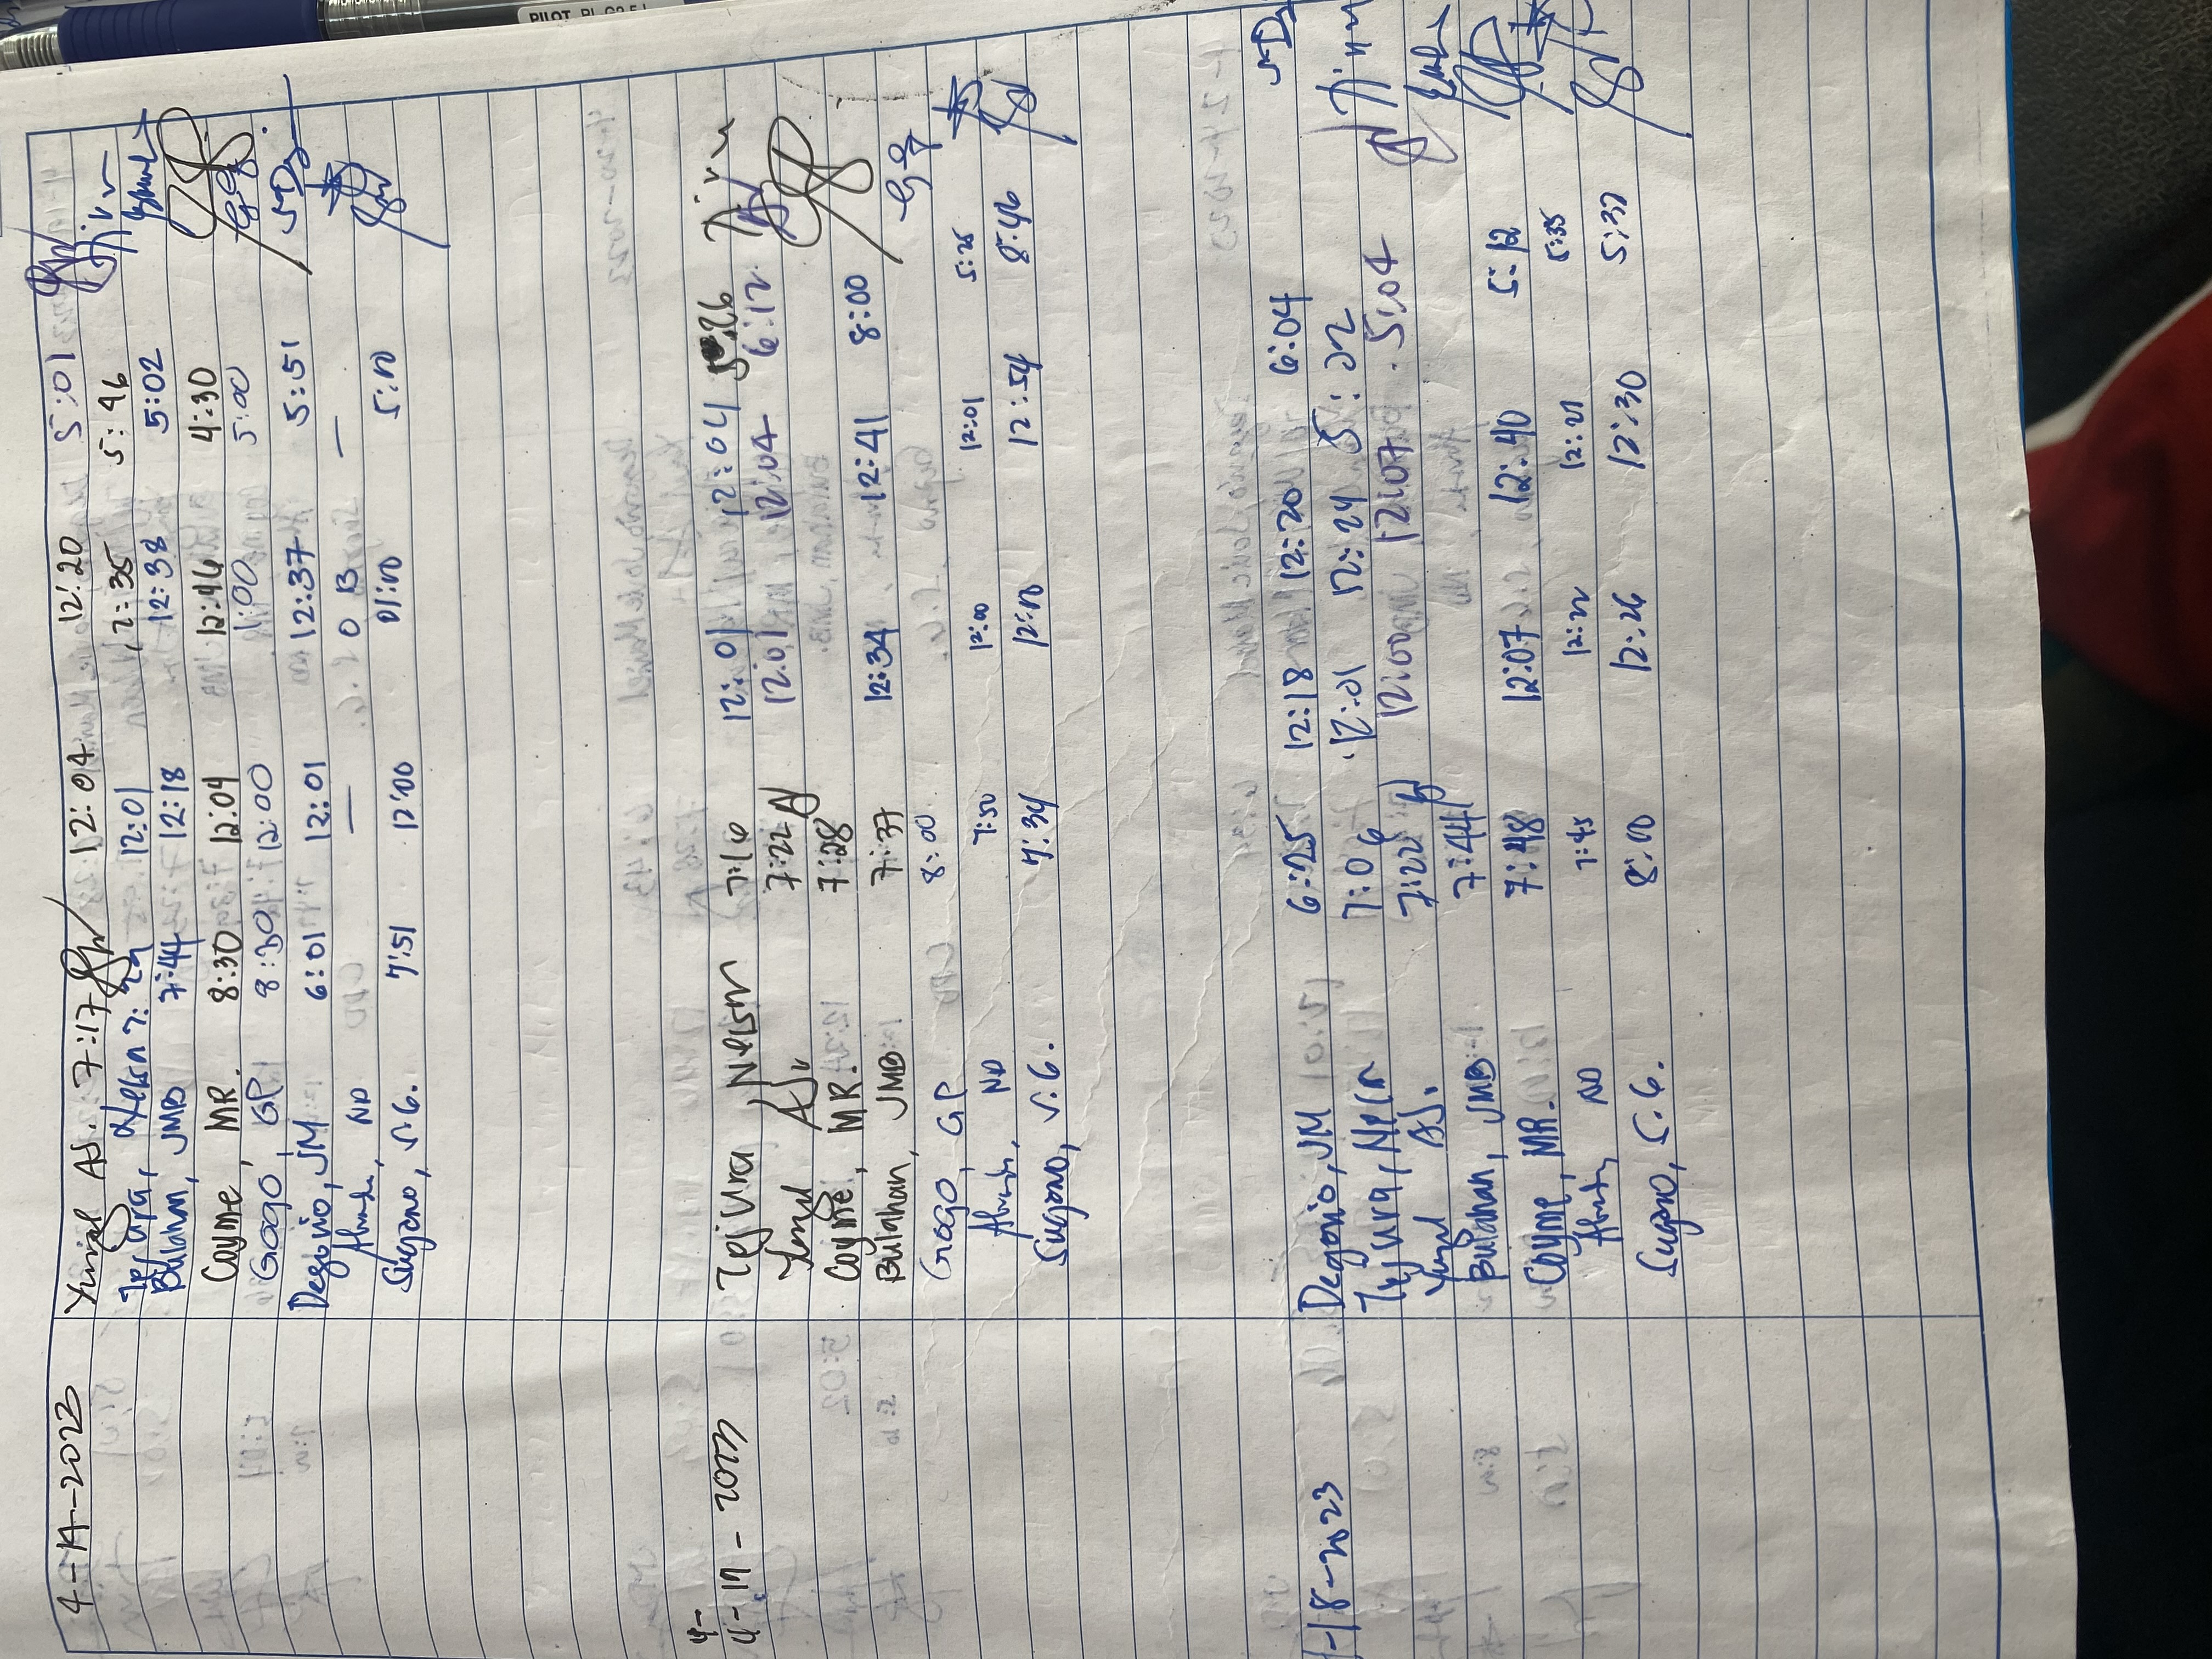 PILOT
4-14-2023
Yungel AS. 7:17 12:04 12:20 5:01
Tejura, Nelson 7:29 12:01 12:35 5:46
Bulahan, JMB 7:44 12:18 12:38 5:02
Cayme, MR. 8:30 12:04 12:46 4:30
Gogo, GP 8:30 12:00 1:00 5:00
Degorio, JM 6:01 12:01 12:37 5:51
ND — O B —
Sugano, S.G. 7:51 12:00 01:00 5:00
4-
4-17-2023
Tejura Nelson 7:16 12:01 12:04 5:26
Yungel AS. 7:22 12:01 12:04 6:12
Cayme, MR. 7:28
Bulahan, JMB 7:37 12:34 12:41 8:00
Gogo, GP 8:00
ND 7:50 12:00 12:01 5:25
Sugano, S.G. 7:34 12:50 12:54 8:46
-18-2023
Degorio, JM 6:25 12:18 12:20 6:04
Tejura, Nelson 7:06 12:01 12:24 5:02
Yungel AS. 7:22 12:00 12:07 5:04
Bulahan, JMB 7:44
Cayme, MR. 7:48 12:07 12:40 5:12
ND 7:45 12:20 12:21 5:35
Sugano, S.G. 8:00 12:26 12:30 5:37